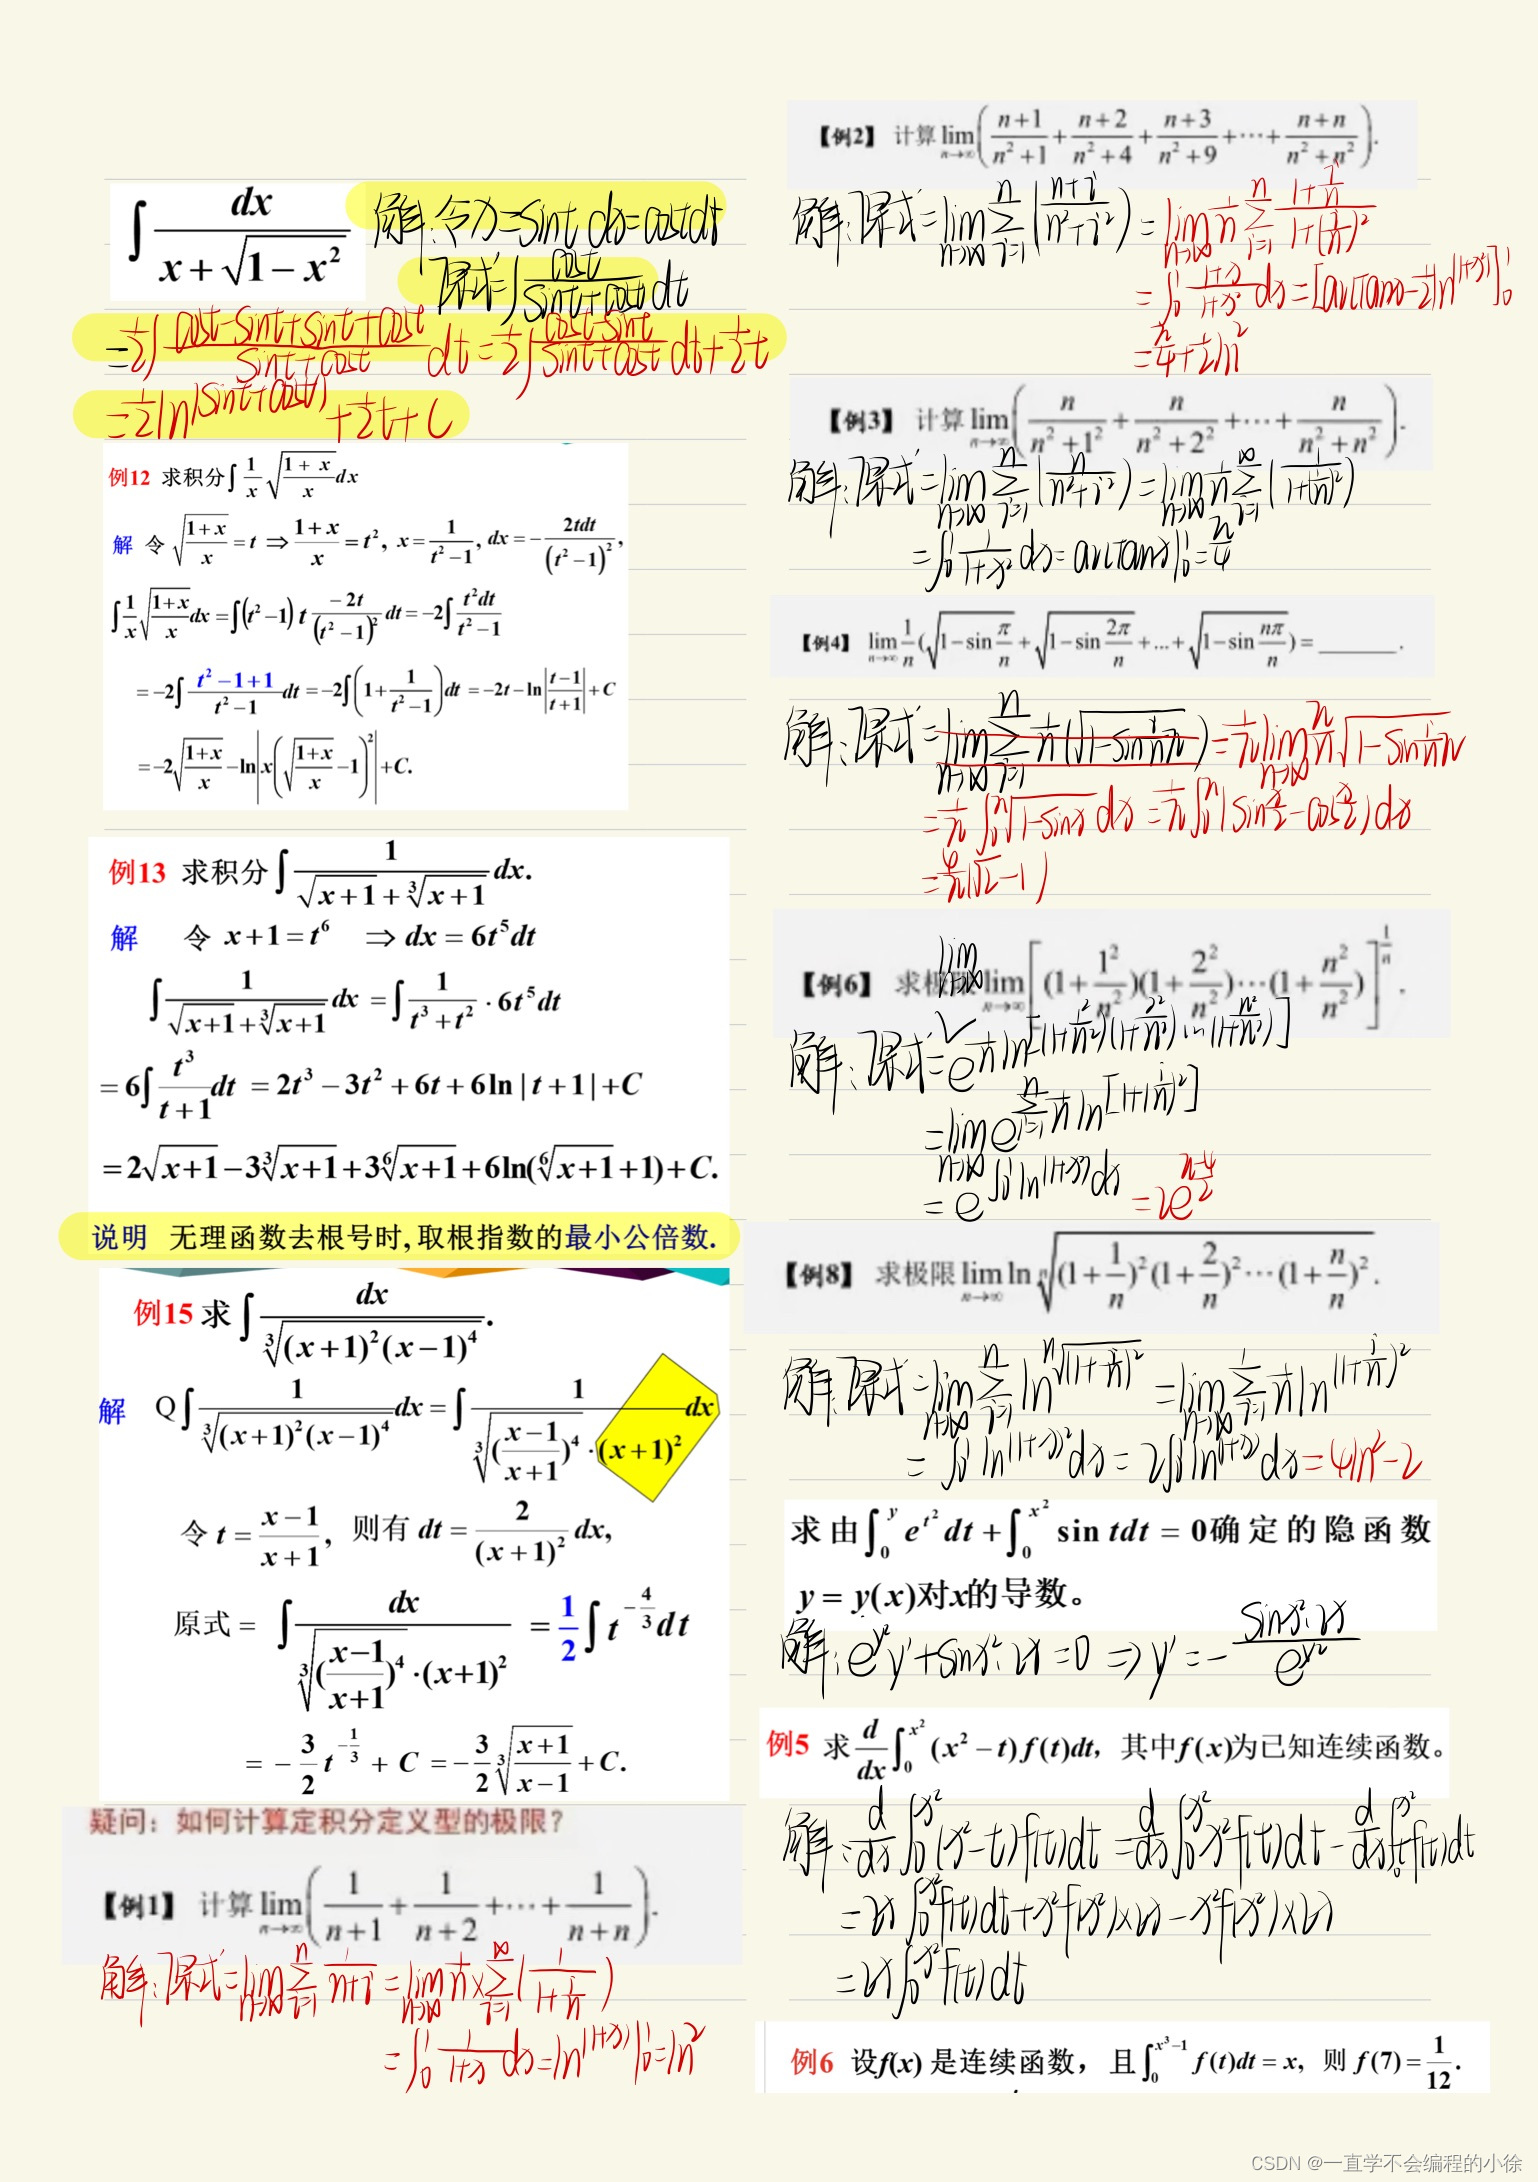 ∫ dx/(x+√(1−x²)) 解:令x=sint dx=costdt
原式=∫ cost/(sint+cost) dt
=½∫ (cost−sint+sint+cost)/(sint+cost) dt=½∫ (cost−sint)/(sint+cost) dt+½t
=½ln|sint+cost|+½t+C
例12 求积分∫ 1/x √((1+x)/x) dx
解 令 √((1+x)/x) = t ⇒ (1+x)/x = t², x = 1/(t²−1), dx = −2tdt/(t²−1)²,
∫ 1/x √((1+x)/x) dx = ∫(t²−1) t (−2t)/(t²−1)² dt = −2∫ t²dt/(t²−1)
= −2∫ (t²−1+1)/(t²−1) dt = −2∫(1+1/(t²−1))dt = −2t−ln|(t−1)/(t+1)|+C
= −2√((1+x)/x) −ln|x(√((1+x)/x)−1)²|+C.
例13 求积分∫ 1/(√(x+1)+∛(x+1)) dx.
解 令 x+1=t⁶ ⇒ dx=6t⁵dt
∫ 1/(√(x+1)+∛(x+1)) dx = ∫ 1/(t³+t²) · 6t⁵dt
= 6∫ t³/(t+1) dt = 2t³−3t²+6t+6ln|t+1|+C
= 2√(x+1)−3∛(x+1)+3⁶√(x+1)+6ln(⁶√(x+1)+1)+C.
说明 无理函数去根号时,取根指数的最小公倍数.
例15 求∫ dx/∛((x+1)²(x−1)⁴).
解 Q∫ 1/∛((x+1)²(x−1)⁴) dx = ∫ 1/(∛((x−1)/(x+1))⁴·(x+1)²) dx
令 t = (x−1)/(x+1), 则有 dt = 2/(x+1)² dx,
原式 = ∫ dx/(∛((x−1)/(x+1))⁴·(x+1)²) = 1/2 ∫ t^(−4/3) dt
= −3/2 t^(−1/3) + C = −3/2 ∛((x+1)/(x−1)) + C.
疑问：如何计算定积分定义型的极限？
【例1】 计算 lim(n→∞) (1/(n+1) + 1/(n+2) + ⋯ + 1/(n+n)).
解:原式=lim(n→∞) Σ(i=1,n) 1/(n+i) = lim(n→∞) 1/n × Σ(i=1,∞) (1/(1+i/n))
=∫₀¹ 1/(1+x) dx=ln(1+x)|₀¹=ln2
【例2】 计算 lim(n→∞) ((n+1)/(n²+1) + (n+2)/(n²+4) + (n+3)/(n²+9) + ⋯ + (n+n)/(n²+n²)).
解:原式=lim(n→∞) Σ(i=1,n) ((n+i)/(n²+i²)) = lim(n→∞) 1/n Σ(i=1,n) (1+i/n)/(1+(i/n)²)
=∫₀¹ (1+x)/(1+x²) dx=[arctanx−½ln|1+x²|]₀¹
=π/4+½ln2
【例3】 计算 lim(n→∞) (n/(n²+1²) + n/(n²+2²) + ⋯ + n/(n²+n²)).
解:原式=lim(n→∞) Σ(i=1,n) (n/(n²+i²)) = lim(n→∞) 1/n Σ(i=1,∞) (1/(1+(i/n)²))
=∫₀¹ 1/(1+x²) dx=arctanx|₀¹=π/4
【例4】 lim(n→∞) 1/n (√(1−sin π/n) + √(1−sin 2π/n) + ... + √(1−sin nπ/n)) = ______.
解:原式=lim(n→∞) Σ(i=1,n) 1/n (√(1−sin i/n π)) = 1/π lim(n→∞) π/n √(1−sin i/n π)
=1/π ∫₀^π √(1−sinx) dx=1/π ∫₀^π |sin x/2−cos x/2| dx
=4/π(√2−1)
【例6】 求极限 lim(n→∞) [(1+1²/n²)(1+2²/n²)⋯(1+n²/n²)]^(1/n).
lim(n→∞)
解:原式=e^(1/n ln[(1+1²/n²)(1+2²/n²)…(1+n²/n²)])
=lim(n→∞) e^(Σ(i=1,n) 1/n ln[1+(i/n)²])
=e^(∫₀¹ ln(1+x²)dx) =2e^((π−4)/2)
【例8】 求极限 lim(n→∞) ln ⁿ√((1+1/n)²(1+2/n)²⋯(1+n/n)²).
解:原式=lim(n→∞) Σ(i=1,n) ln ⁿ√((1+i/n)²) = lim(n→∞) Σ(i=1) 1/n ln(1+i/n)²
=∫₀¹ ln(1+x)²dx=2∫₀¹ ln(1+x)dx=4ln2−2
求由∫₀^y e^(t²) dt + ∫₀^(x²) sin tdt = 0确定的隐函数
y = y(x)对x的导数。
解:e^(y²)y'+sinx²·2x=0 ⇒ y'=− sinx²·2x/e^(y²)
例5 求 d/dx ∫₀^(x²) (x²−t)f(t)dt，其中f(x)为已知连续函数。
解:d/dx ∫₀^(x²) (x²−t)f(t)dt = d/dx ∫₀^(x²) x²f(t)dt − d/dx ∫₀^(x²) tf(t)dt
=2x∫₀^(x²) f(t)dt+x²f(x²)×2x−x²f(x²)×2x
=2x∫₀^(x²) f(t)dt
例6 设f(x) 是连续函数，且∫₀^(x³−1) f(t)dt = x, 则 f(7) = 1/12.
CSDN @一直学不会编程的小徐